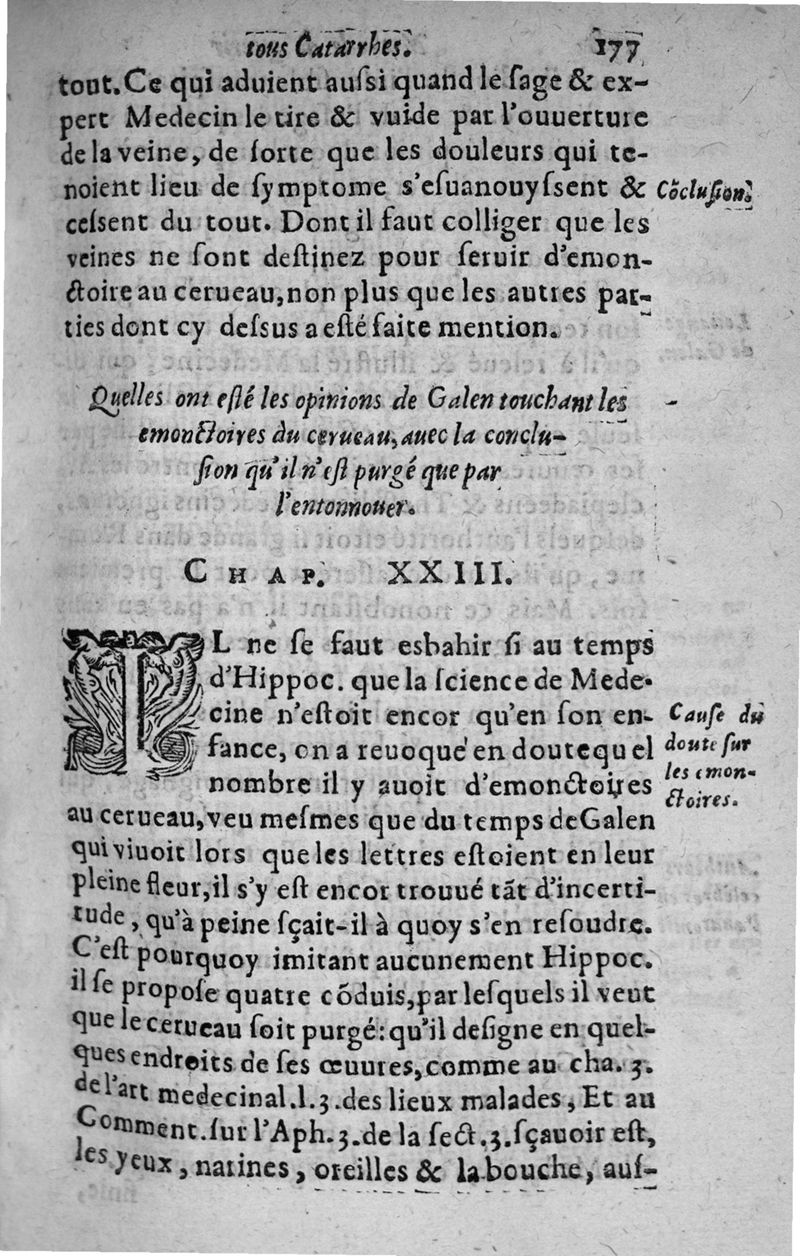 tous Catarrhes. 177
tout. Ce qui aduient aussi quand le sage & ex-
pert Medecin le tire & vuide par l'ouuerture
de la veine, de sorte que les douleurs qui te-
noient lieu de symptome s'esuanouyssent &
Cõclusion.
cessent du tout. Dont il faut colliger que les
veines ne sont destinez pour seruir d'emon-
ctoire au cerueau, non plus que les autres par-
ties dont cy dessus a esté faite mention.
Quelles ont esté les opinions de Galen touchant les
emonctoires du cerueau, auec la conclu-
sion qu'il n'est purgé que par
l'entonnouer.
CHAP. XXIII.
IL ne se faut esbahir si au temps
d'Hippoc. que la science de Mede-
cine n'estoit encor qu'en son en-
fance, on a reuoqué en doute quel
nombre il y auoit d'emonctoires
Cause du
doute sur
les emon-
ctoires.
au cerueau, veu mesmes que du temps de Galen
qui viuoit lors que les lettres estoient en leur
pleine fleur, il s'y est encor trouué tãt d'incerti-
tude, qu'à peine sçait-il à quoy s'en resoudre.
C'est pourquoy imitant aucunement Hippoc.
il se propose quatre cõduis, par lesquels il veut
que le cerueau soit purgé: qu'il designe en quel-
ques endroits de ses œuures, comme au cha. 3.
de l'art medecinal. l. 3. des lieux malades, Et au
Comment. sur l'Aph. 3. de la sect. 3. sçauoir est,
les yeux, narines, oreilles & la bouche, aus-